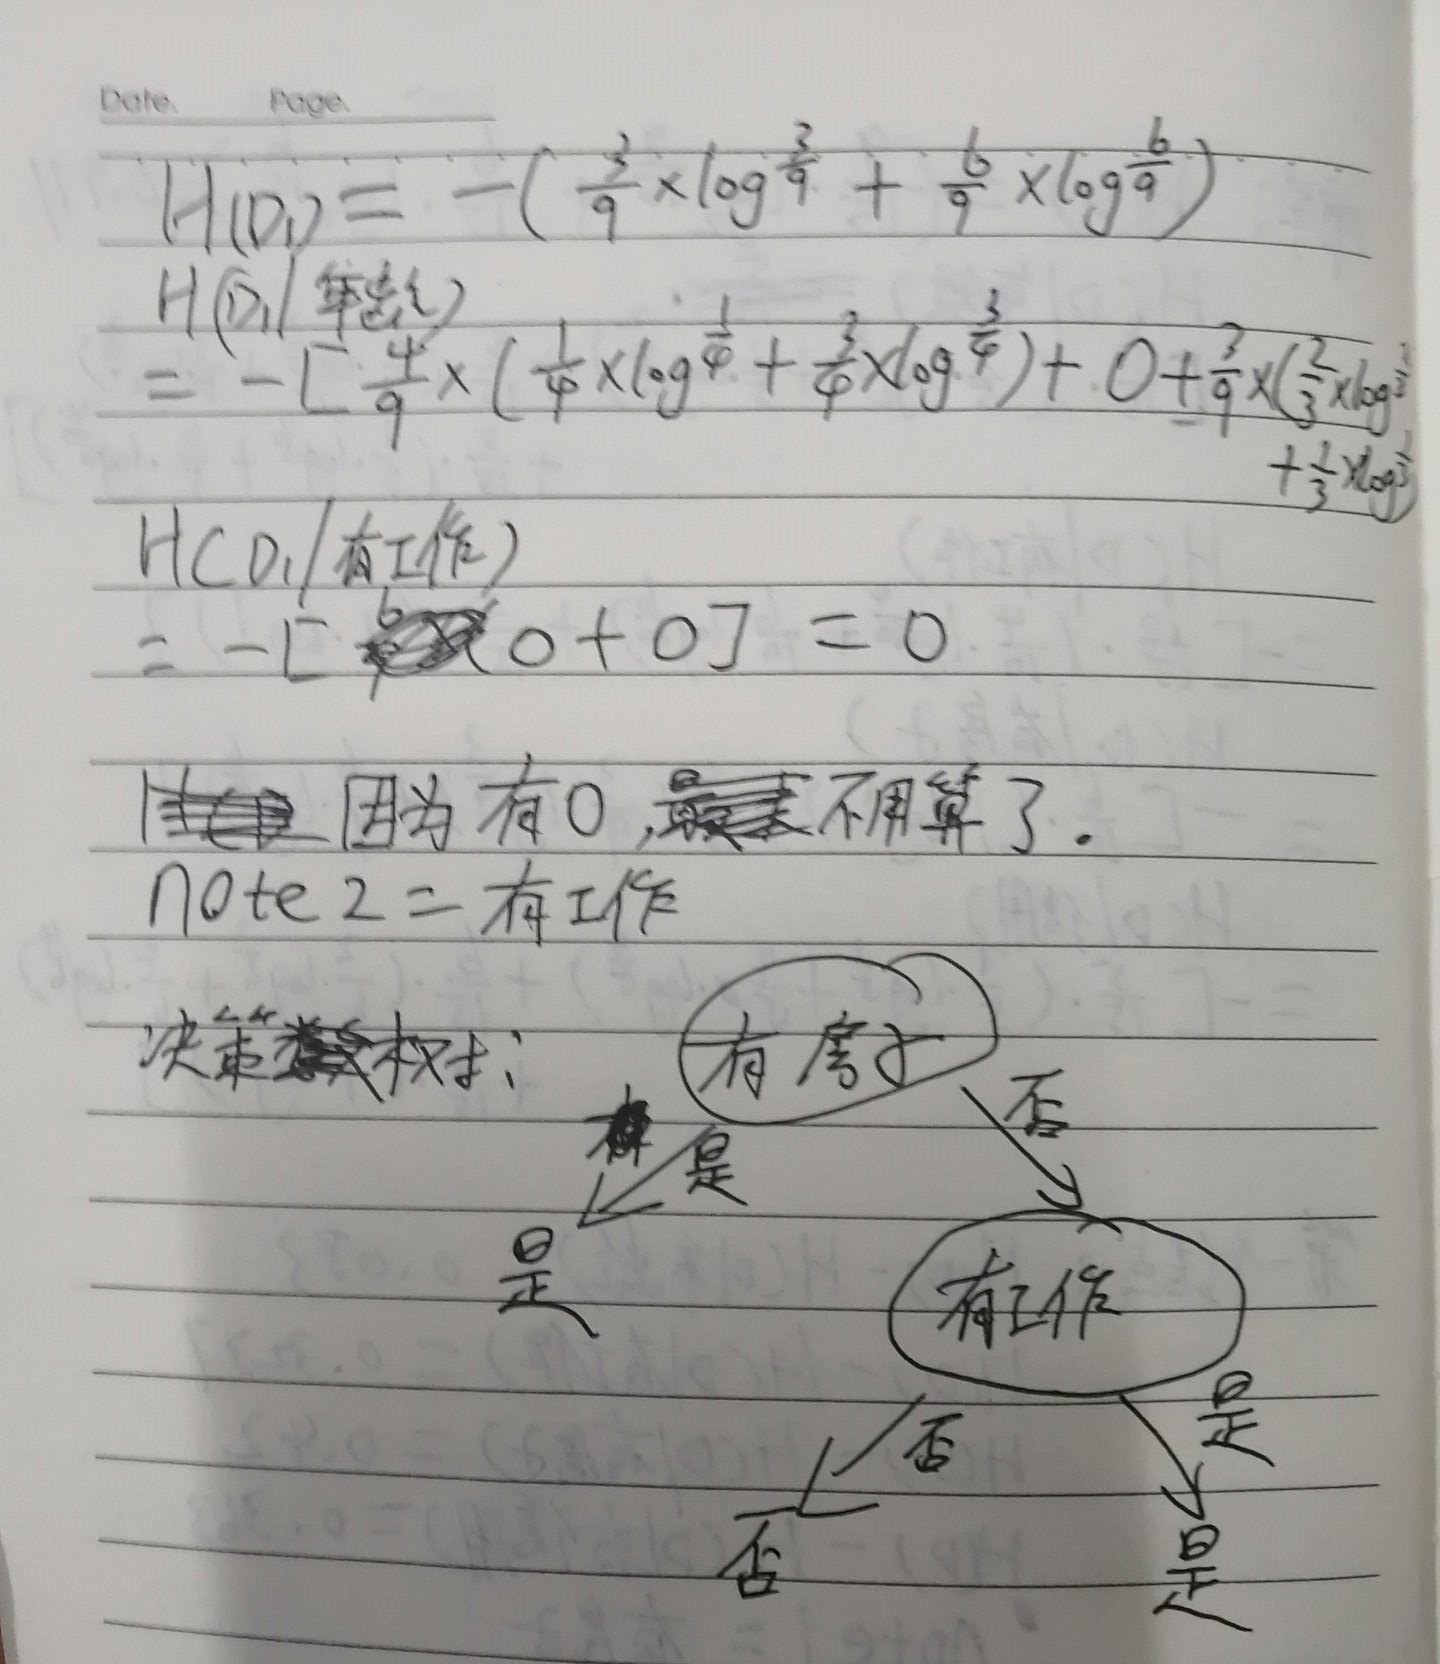 Date. Page.
H(D₁) = -(3/9 × log 3/9 + 6/9 × log 6/9)
H(D₁/年龄)
= -[4/9 × (1/4 × log 1/4 + 3/4 × log 3/4) + 0 + 3/9 × (2/3 × log 2/3
+ 1/3 × log 1/3)
H(D₁/有工作)
= -[0+0] = 0
因为有0,不用算了.
note 2 = 有工作
决策树:
有房子
是 否
是
有工作
否 是
否 是